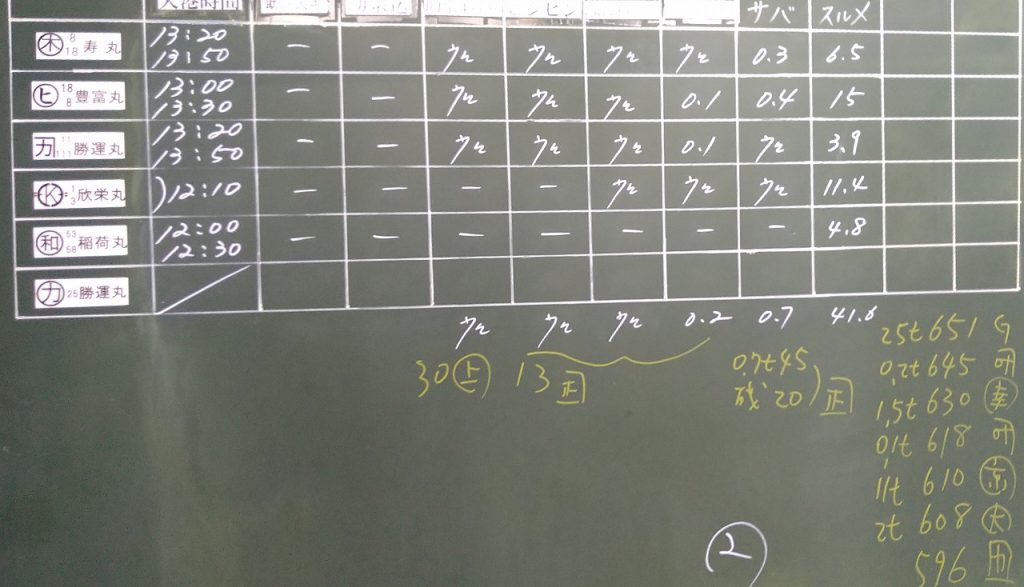 入港時間 サバ スルメ
㊍ 8 18 寿丸 13:20 13:50 ー ー ウロ ウロ ウロ ウロ 0.3 6.5
ヒ 18 8 豊富丸 13:00 13:30 ー ー ウロ ウロ ウロ 0.1 0.4 15
カ 11 111 勝運丸 13:20 13:50 ー ー ウロ ウロ ウロ 0.1 ウロ 3.9
K 1 3 欣栄丸 )12:10 ー ー ー ー ウロ ウロ ウロ 11.4
和 53 58 稲荷丸 12:00 12:30 ー ー ー ー ー ー ー 4.8
カ 25 勝運丸
ウロ ウロ ウロ 0.2 0.7 41.6
30 ㊤ 13 正
0.7t45
残 20 ) 正
25t 651
0.2t 645
1.5t 630
0.1t 618
11t 610 京
2t 608 大
596
2